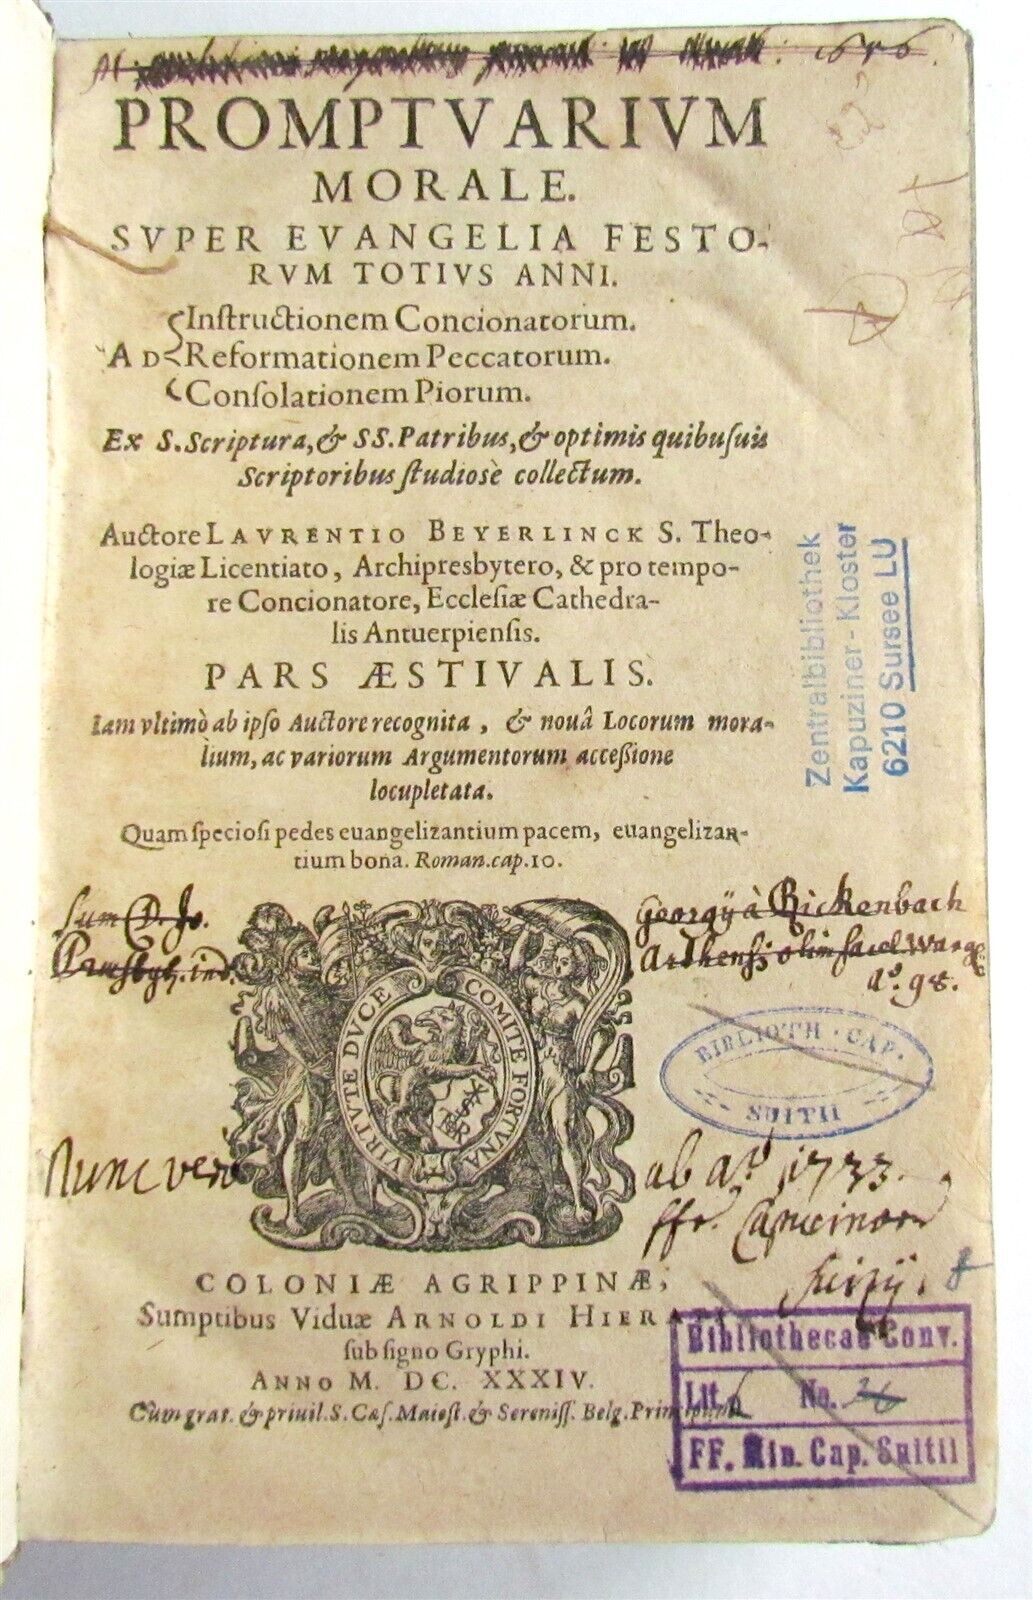 1656.
PROMPTVARIVM
MORALE.
SVPER EVANGELIA FESTO-
RVM TOTIVS ANNI.
Inſtructionem Concionatorum.
AD Reformationem Peccatorum.
Conſolationem Piorum.
Ex S. Scriptura, & SS. Patribus, & optimis quibuſuis
Scriptoribus ſtudiosè collectum.
Auctore LAVRENTIO BEYERLINCK S. Theo-
logiæ Licentiato, Archipresbytero, & pro tempo-
re Concionatore, Eccleſiæ Cathedra-
lis Antuerpienſis.
PARS ÆSTIVALIS.
Iam vltimò ab ipſo Auctore recognita, & nouâ Locorum mora-
lium, ac variorum Argumentorum acceſsione
locupletata.
Quam ſpecioſi pedes euangelizantium pacem, euangelizan-
tium bona. Roman. cap. 10.
Zentralbibliothek
Kapuziner-Kloster
6210 Sursee LU
Sum D. Jo. Georgij à Rickenbach
Presbyt. ind. Arthensis olim
do. 98.
VIRTVTE DVCE COMITE FORTVNA
BIBLIOTH. CAP.
SUITII
Nunc vero ab ao. 1733.
ffr. Capucinor
Suitij. 8
COLONIÆ AGRIPPINÆ,
Sumptibus Viduæ ARNOLDI HIERATI
ſub ſigno Gryphi.
ANNO M. DC. XXXIV.
Cum grat. & priuil. S. Cæſ. Maieſt. & Sereniſſ. Belg. Principum
Bibliothecae Conv.
Lit. No. 26
FF. Min. Cap. Suitii